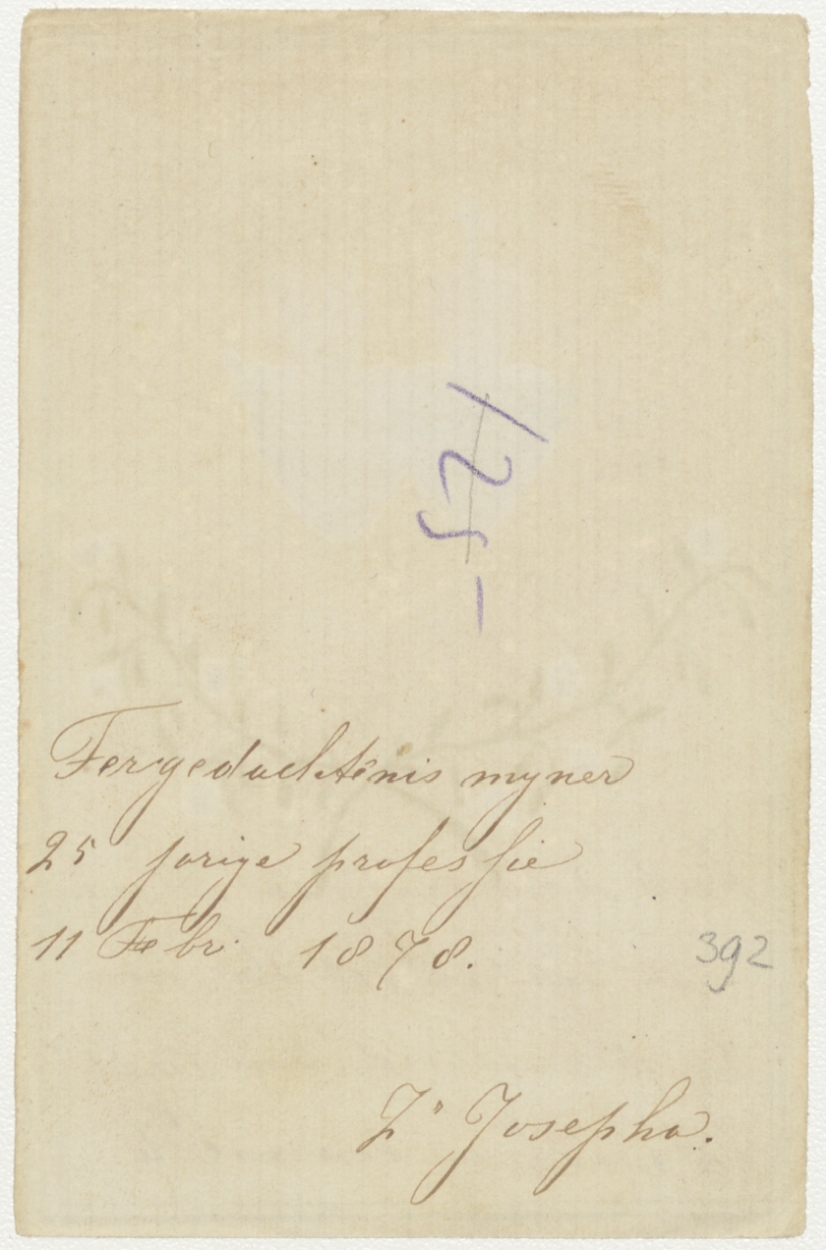 125-
Tergedachtenis myner
25 jarige professie
11 Febr. 1878.
392
Zr Josepha.